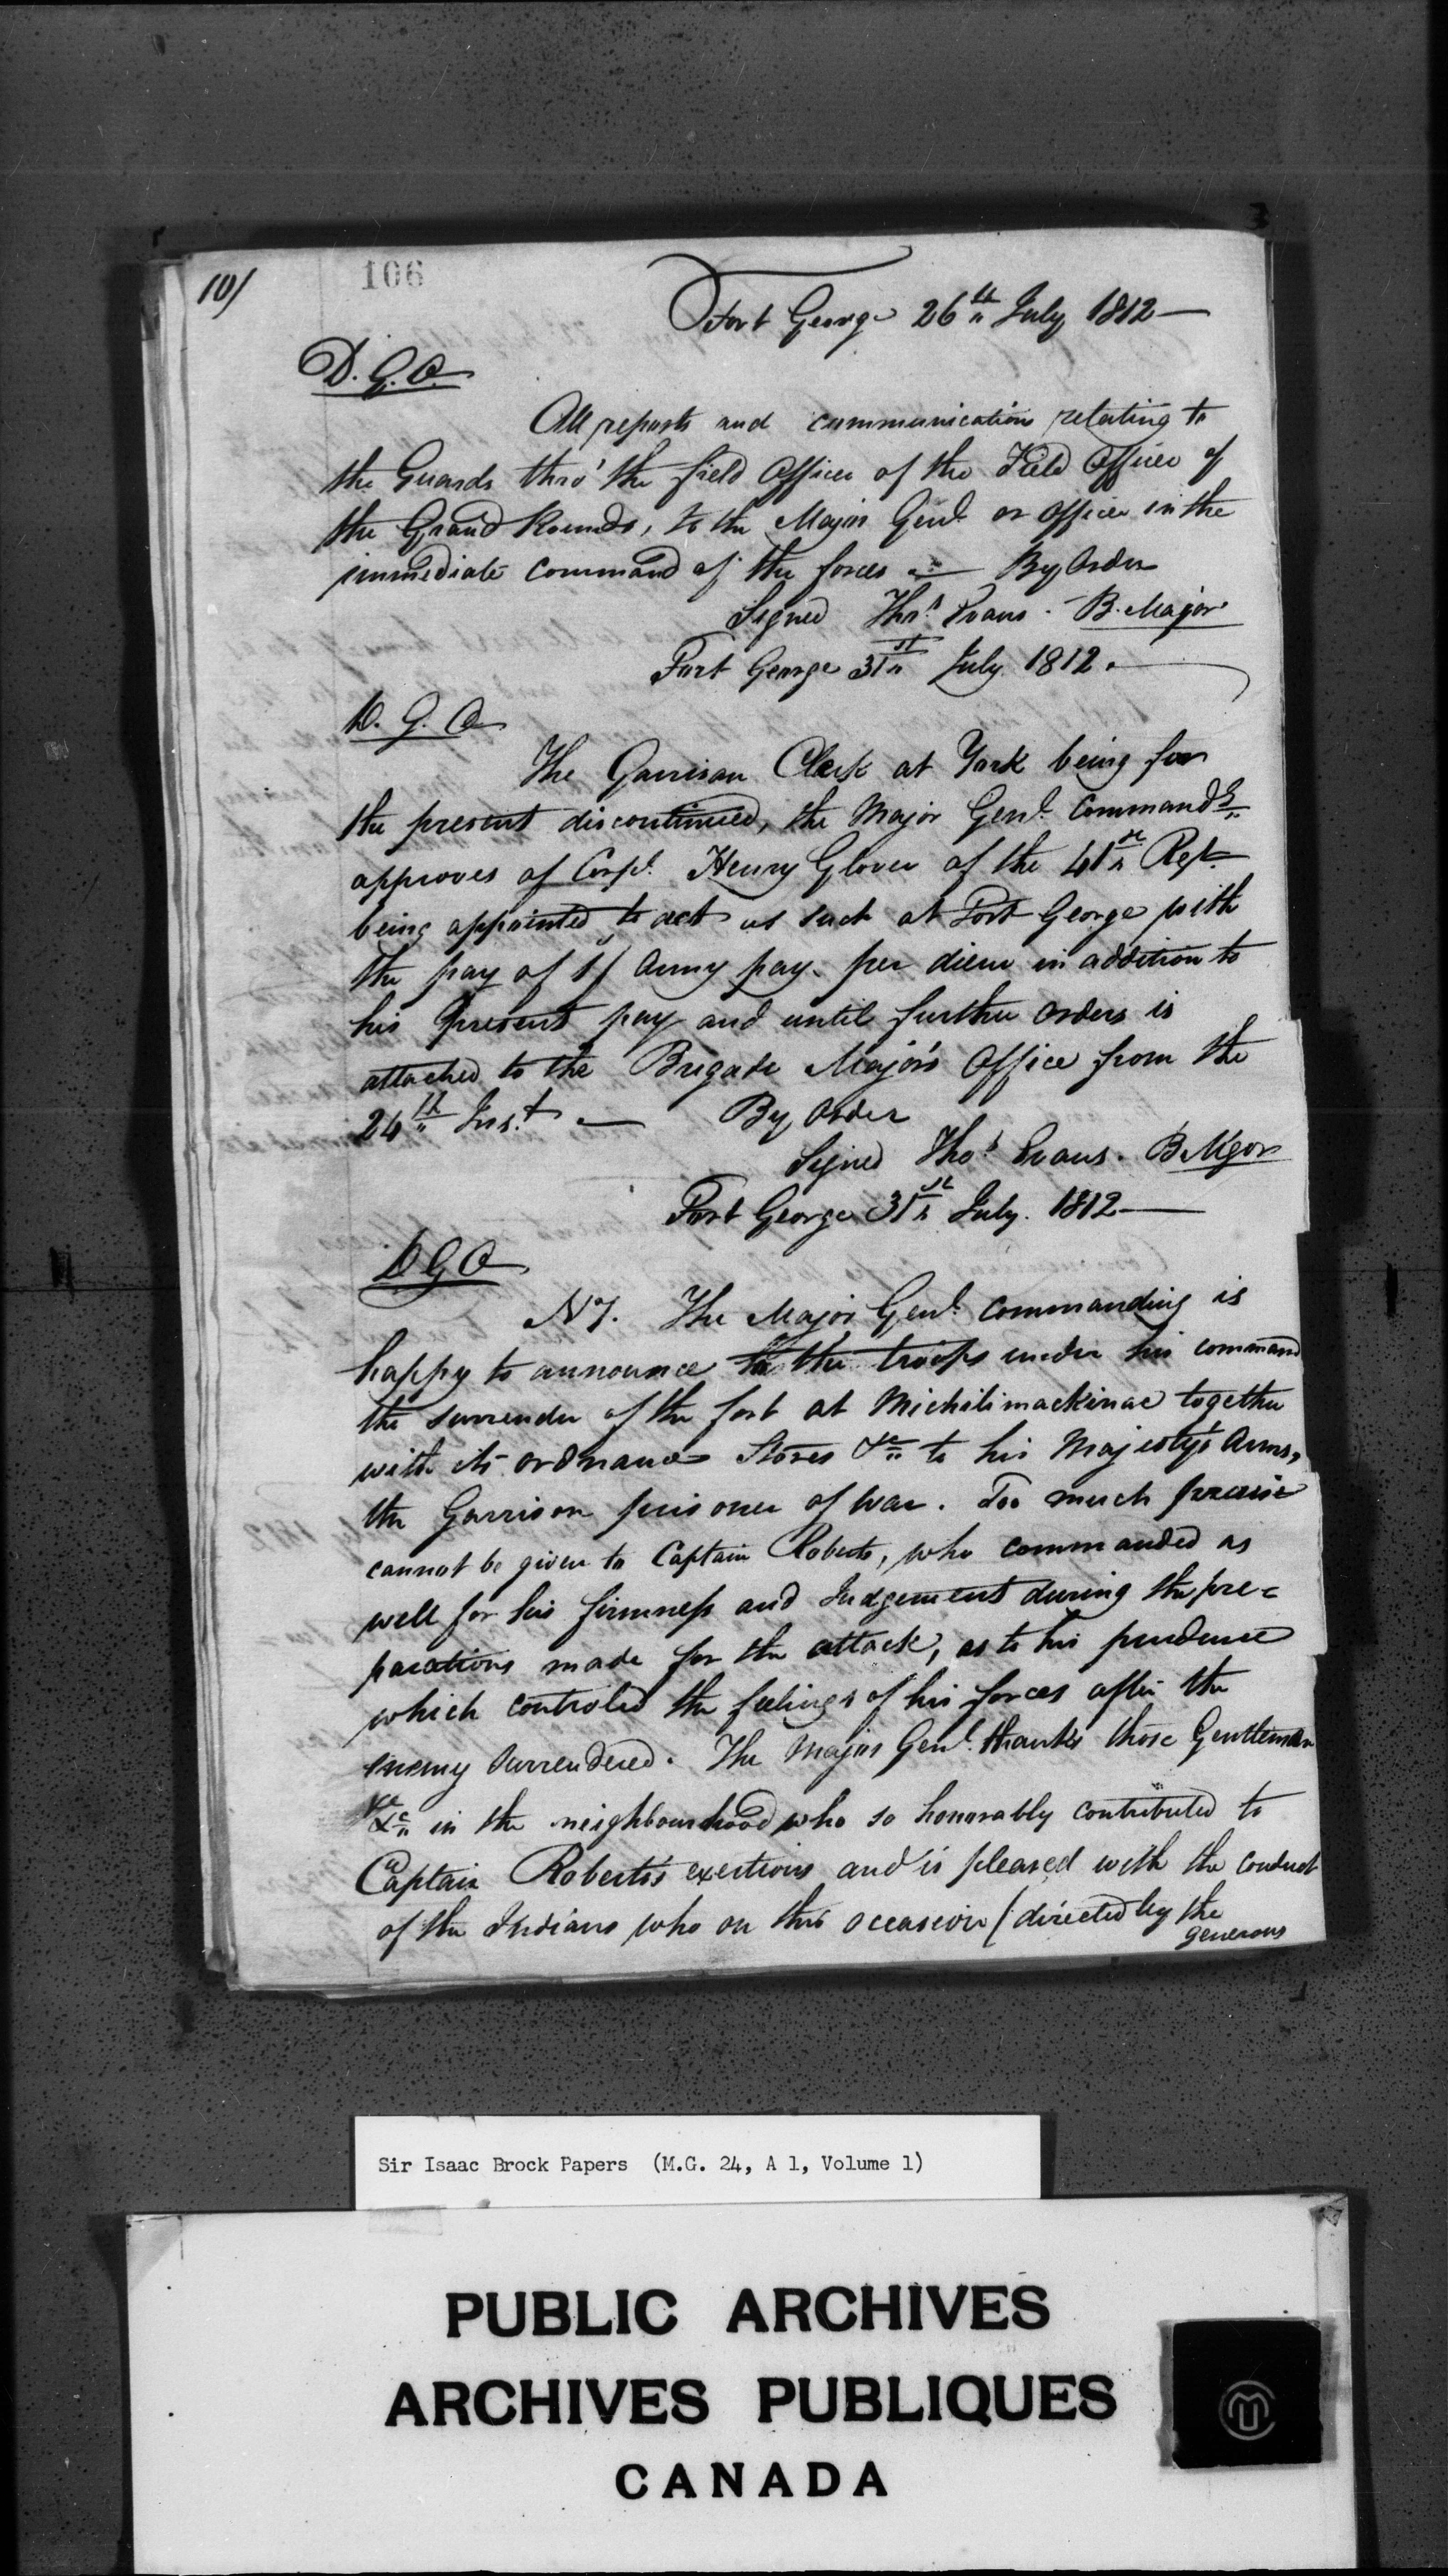 10/
106
Fort George 26th July 1812—
D. G. O.
All reports and communications relating to
the Guards thro' the field Officer of the Field Officer of
the Grand Rounds, to the Major Genl. or officer in the
immediate command of the forces — By Order
Signed Thos. Evans. B. Major
Fort George 31st July 1812.
D. G. O
The Garrison Clerk at York being for
the present discontinued, the Major Genl. Commandg
approves of Corpl. Henry Glover of the 41st Regt
being appointed to act as such at Fort George with
the pay of 1/ Army pay per diem in addition to
his present pay and until further orders is
attached to the Brigade Major's Office from the
24th Inst. — By Order
Signed Thos. Evans. B Mjor
Fort George 31st July. 1812—
D G O
The Major Genl. Commanding is
happy to announce to the troops under his command
the surrender of the fort at Michilimackinac together
with its ordnance Stores &c to his Majesty's Arms,
the Garrison prisoner of War. Too much praise
cannot be given to Captain Roberts, who commanded as
well for his firmness and Judgement during the pre=
parations made for the attack, as to his prudence
which controled the feelings of his forces after the
enemy surrendered. The Major Genl. thanks those Gentlemen
&c in the neighbourhood who so honorably contributed to
Captain Roberts's exertions and is pleased with the conduct
of the Indians who on this occasion (directed by the
generous
Sir Isaac Brock Papers (M.G. 24, A 1, Volume 1)
PUBLIC ARCHIVES
ARCHIVES PUBLIQUES
CANADA